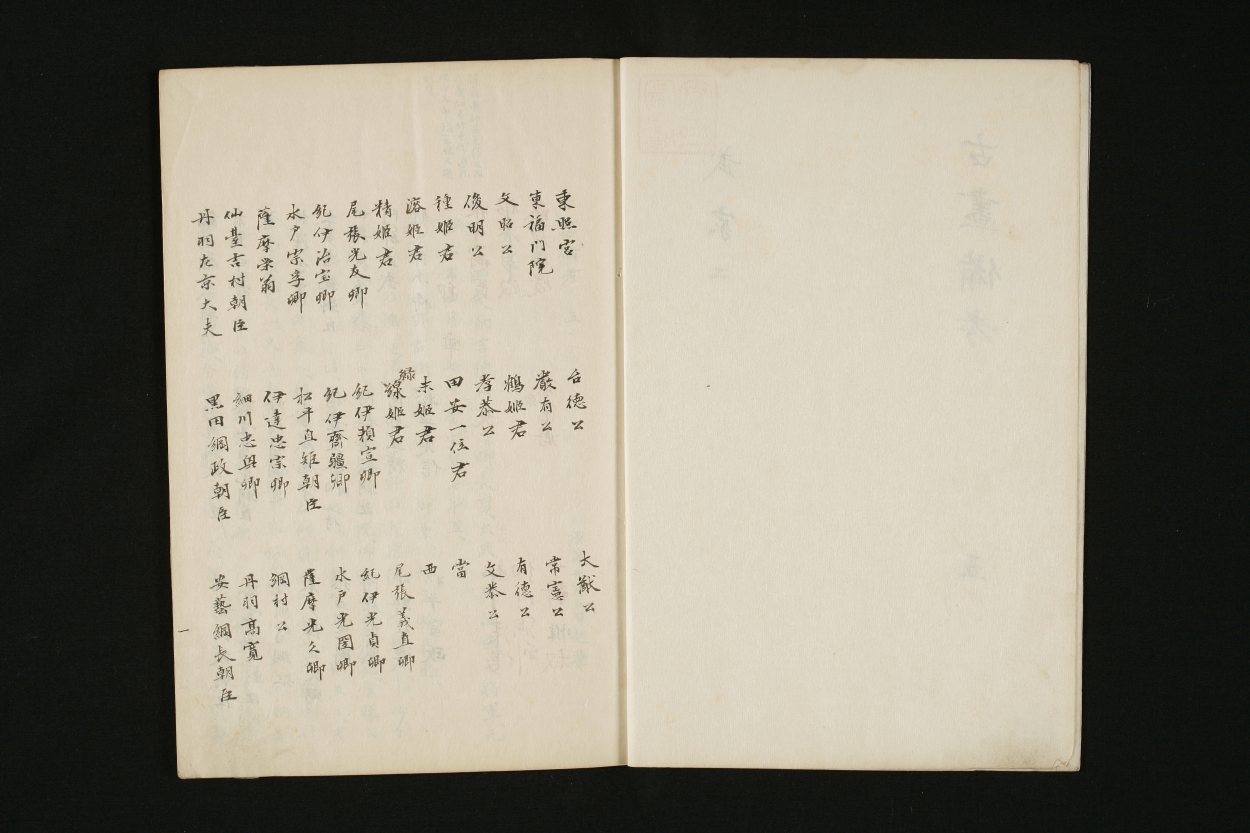 東照宮　台徳公　大猷公
東福門院　嚴有公　常憲公
文昭公　鶴姫君　有徳公
俊明公　孝恭公　文恭公
種姫君　田安一位君　當
溶姫君　末姫君　西
精姫君　線姫君　尾張義直卿
緑
尾張光友卿　紀伊頼宣卿　紀伊光貞卿
紀伊治宝卿　紀伊齊疆卿　水戸光圀卿
水戸宗孝卿　松平直矩朝臣　薩摩光久卿
薩摩栄翁　伊達忠宗卿　綱村公
仙臺吉村朝臣　細川忠興卿　丹羽高寛
丹羽左京大夫　黒田綱政朝臣　安藝綱長朝臣